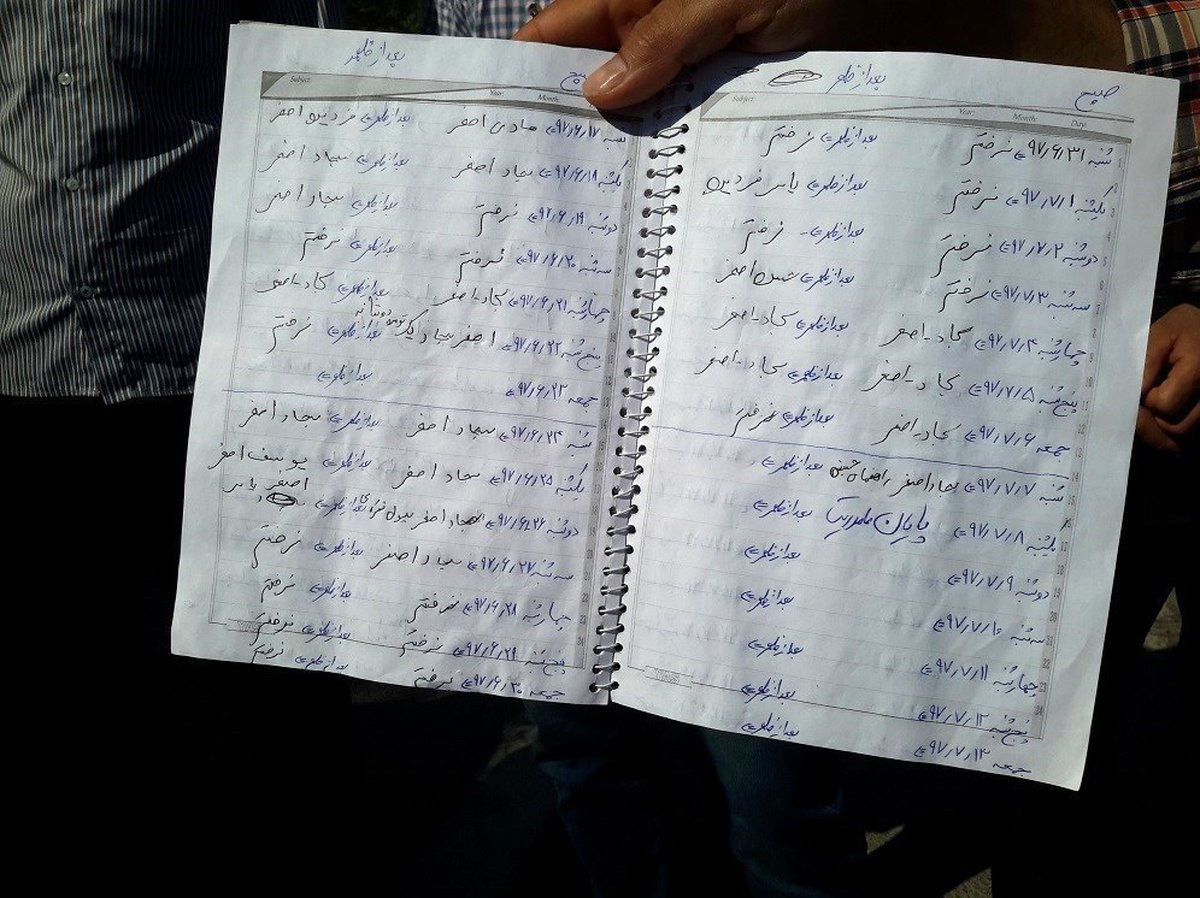 صبح بعدازظهر
Subject: Year: Month: Day:
شنبه ۹۷/۶/۳۱ نرفتم بعدازظهر نرفتم
یکشنبه ۹۷/۷/۱ نرفتم بعدازظهر یاسر فردین
دوشنبه ۹۷/۷/۲ نرفتم بعدازظهر نرفتم
سه شنبه ۹۷/۷/۳ نرفتم بعدازظهر اصغر
چهارشنبه ۹۷/۷/۴ سجاد - اصغر بعدازظهر سجاد - اصغر
پنج شنبه ۹۷/۷/۵ سجاد - اصغر بعدازظهر سجاد - اصغر
جمعه ۹۷/۷/۶ سجاد - اصغر بعدازظهر نرفتم
شنبه ۹۷/۷/۷ سجاد اصغر بعدازظهر
یکشنبه ۹۷/۷/۸ پایان ماموریت بعدازظهر
دوشنبه ۹۷/۷/۹ بعدازظهر
سه شنبه ۹۷/۷/۱۰ بعدازظهر
چهارشنبه ۹۷/۷/۱۱ بعدازظهر
پنج شنبه ۹۷/۷/۱۲ بعدازظهر
جمعه ۹۷/۷/۱۳ بعدازظهر
صبح بعدازظهر
Subject: Year: Month:
شنبه ۹۷/۶/۱۷ هادی اصغر بعدازظهر فردین اصغر
یکشنبه ۹۷/۶/۱۸ سجاد اصغر بعدازظهر سجاد اصغر
دوشنبه ۹۷/۶/۱۹ نرفتم بعدازظهر سجاد اصغر
سه شنبه ۹۷/۶/۲۰ نرفتم بعدازظهر نرفتم
چهارشنبه ۹۷/۶/۲۱ سجاد - اصغر بعدازظهر سجاد - اصغر
پنج شنبه ۹۷/۶/۲۲ اصغر سجاد بعدازظهر نرفتم
جمعه ۹۷/۶/۲۳ بعدازظهر
شنبه ۹۷/۶/۲۴ سجاد اصغر بعدازظهر سجاد اصغر
یکشنبه ۹۷/۶/۲۵ سجاد اصغر بعدازظهر یوسف اصغر
دوشنبه ۹۷/۶/۲۶ سجاد اصغر بعدازظهر اصغر یاسر
سه شنبه ۹۷/۶/۲۷ سجاد اصغر بعدازظهر نرفتم
چهارشنبه ۹۷/۶/۲۸ نرفتم بعدازظهر نرفتم
پنج شنبه ۹۷/۶/۲۹ نرفتم بعدازظهر نرفتم
جمعه ۹۷/۶/۳۰ نرفتم بعدازظهر نرفتم